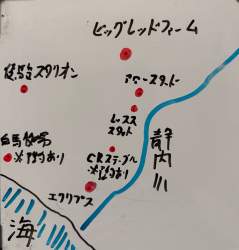 ビッグレッドファーム
優駿スタリオン
アロースタッド
レックス
スタッド
静内川
白馬牧場
※門あり
CRステーブル
※門あり
エクリプス
海